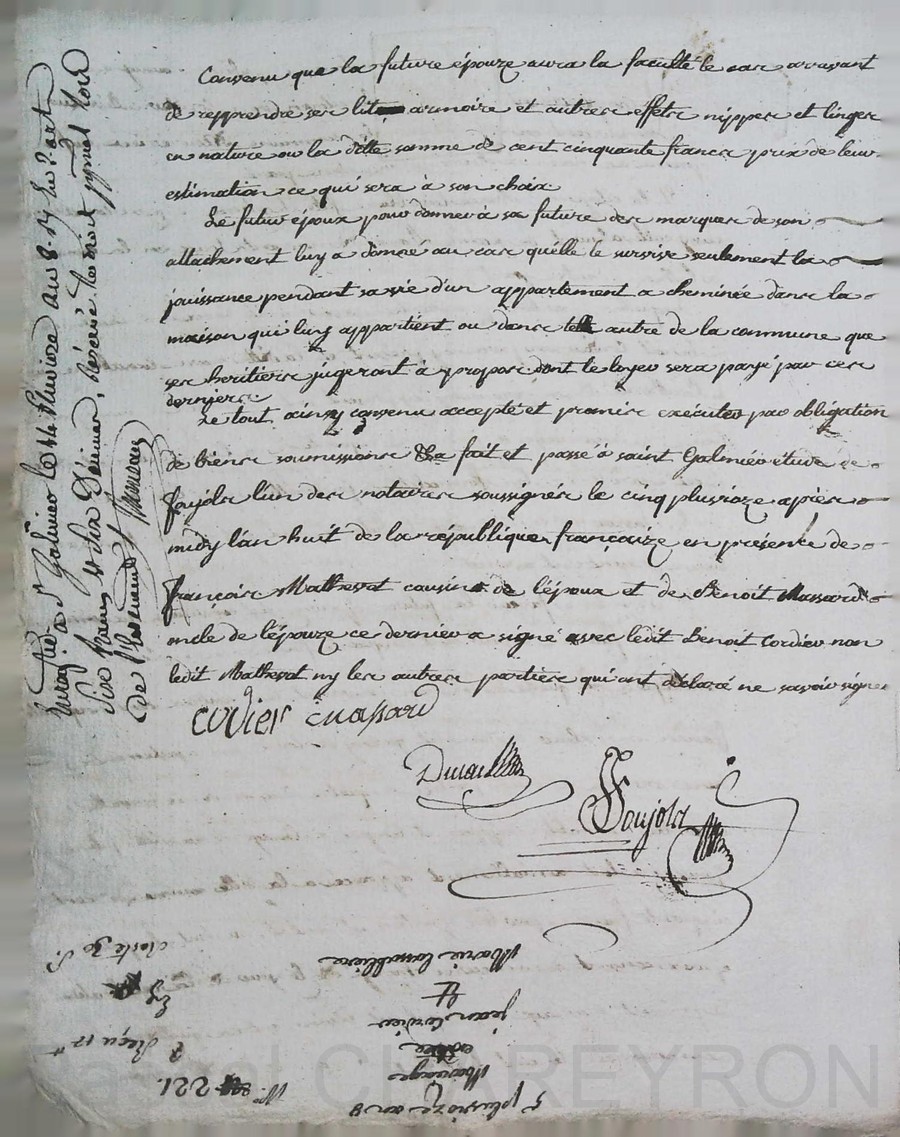 Convenu que la future épouze aura la faculté le cas arrivant
de repprendre ses lit armoire et autres effets nippes et linges
en nature ou la ditte somme de cent cinquante francs prix de leur
estimation ce qui sera à son choix
Le futur époux pour donner à sa future des marques de son
attachement luy a donné au cas quélle le survive seulement la
jouissance pendant sa vie d'un appartement a cheminée dans la
maison qui luy appartient ou dans telle autre de la commune que
ses heritiers jugeront à propos dont le loyer sera payé par ces
derniers
Le tout ainsy convenu accepté et promis exécuter par obligation
de biens soumissions &a fait et passé à saint Galmier étude de
Foujols l'un des notaires soussignés le cinq pluvioze après
midy l'an huit de la république françaize en présence de
françois Mathevet cousin de l'époux et de Benoit Massard
oncle de l'épouze ce dernier a signé avec ledit Benoit Cordier non
ledit Mathevet ny les autres parties qui ont déclaré ne savoir signer
cordier massard
Foujols
Enregistré à St Galmier le 14 Pluviose an 8.
six francs
Marie
jean Cordier
Mariage
5 pluvioze an 8
No. 221.
Reçu 12